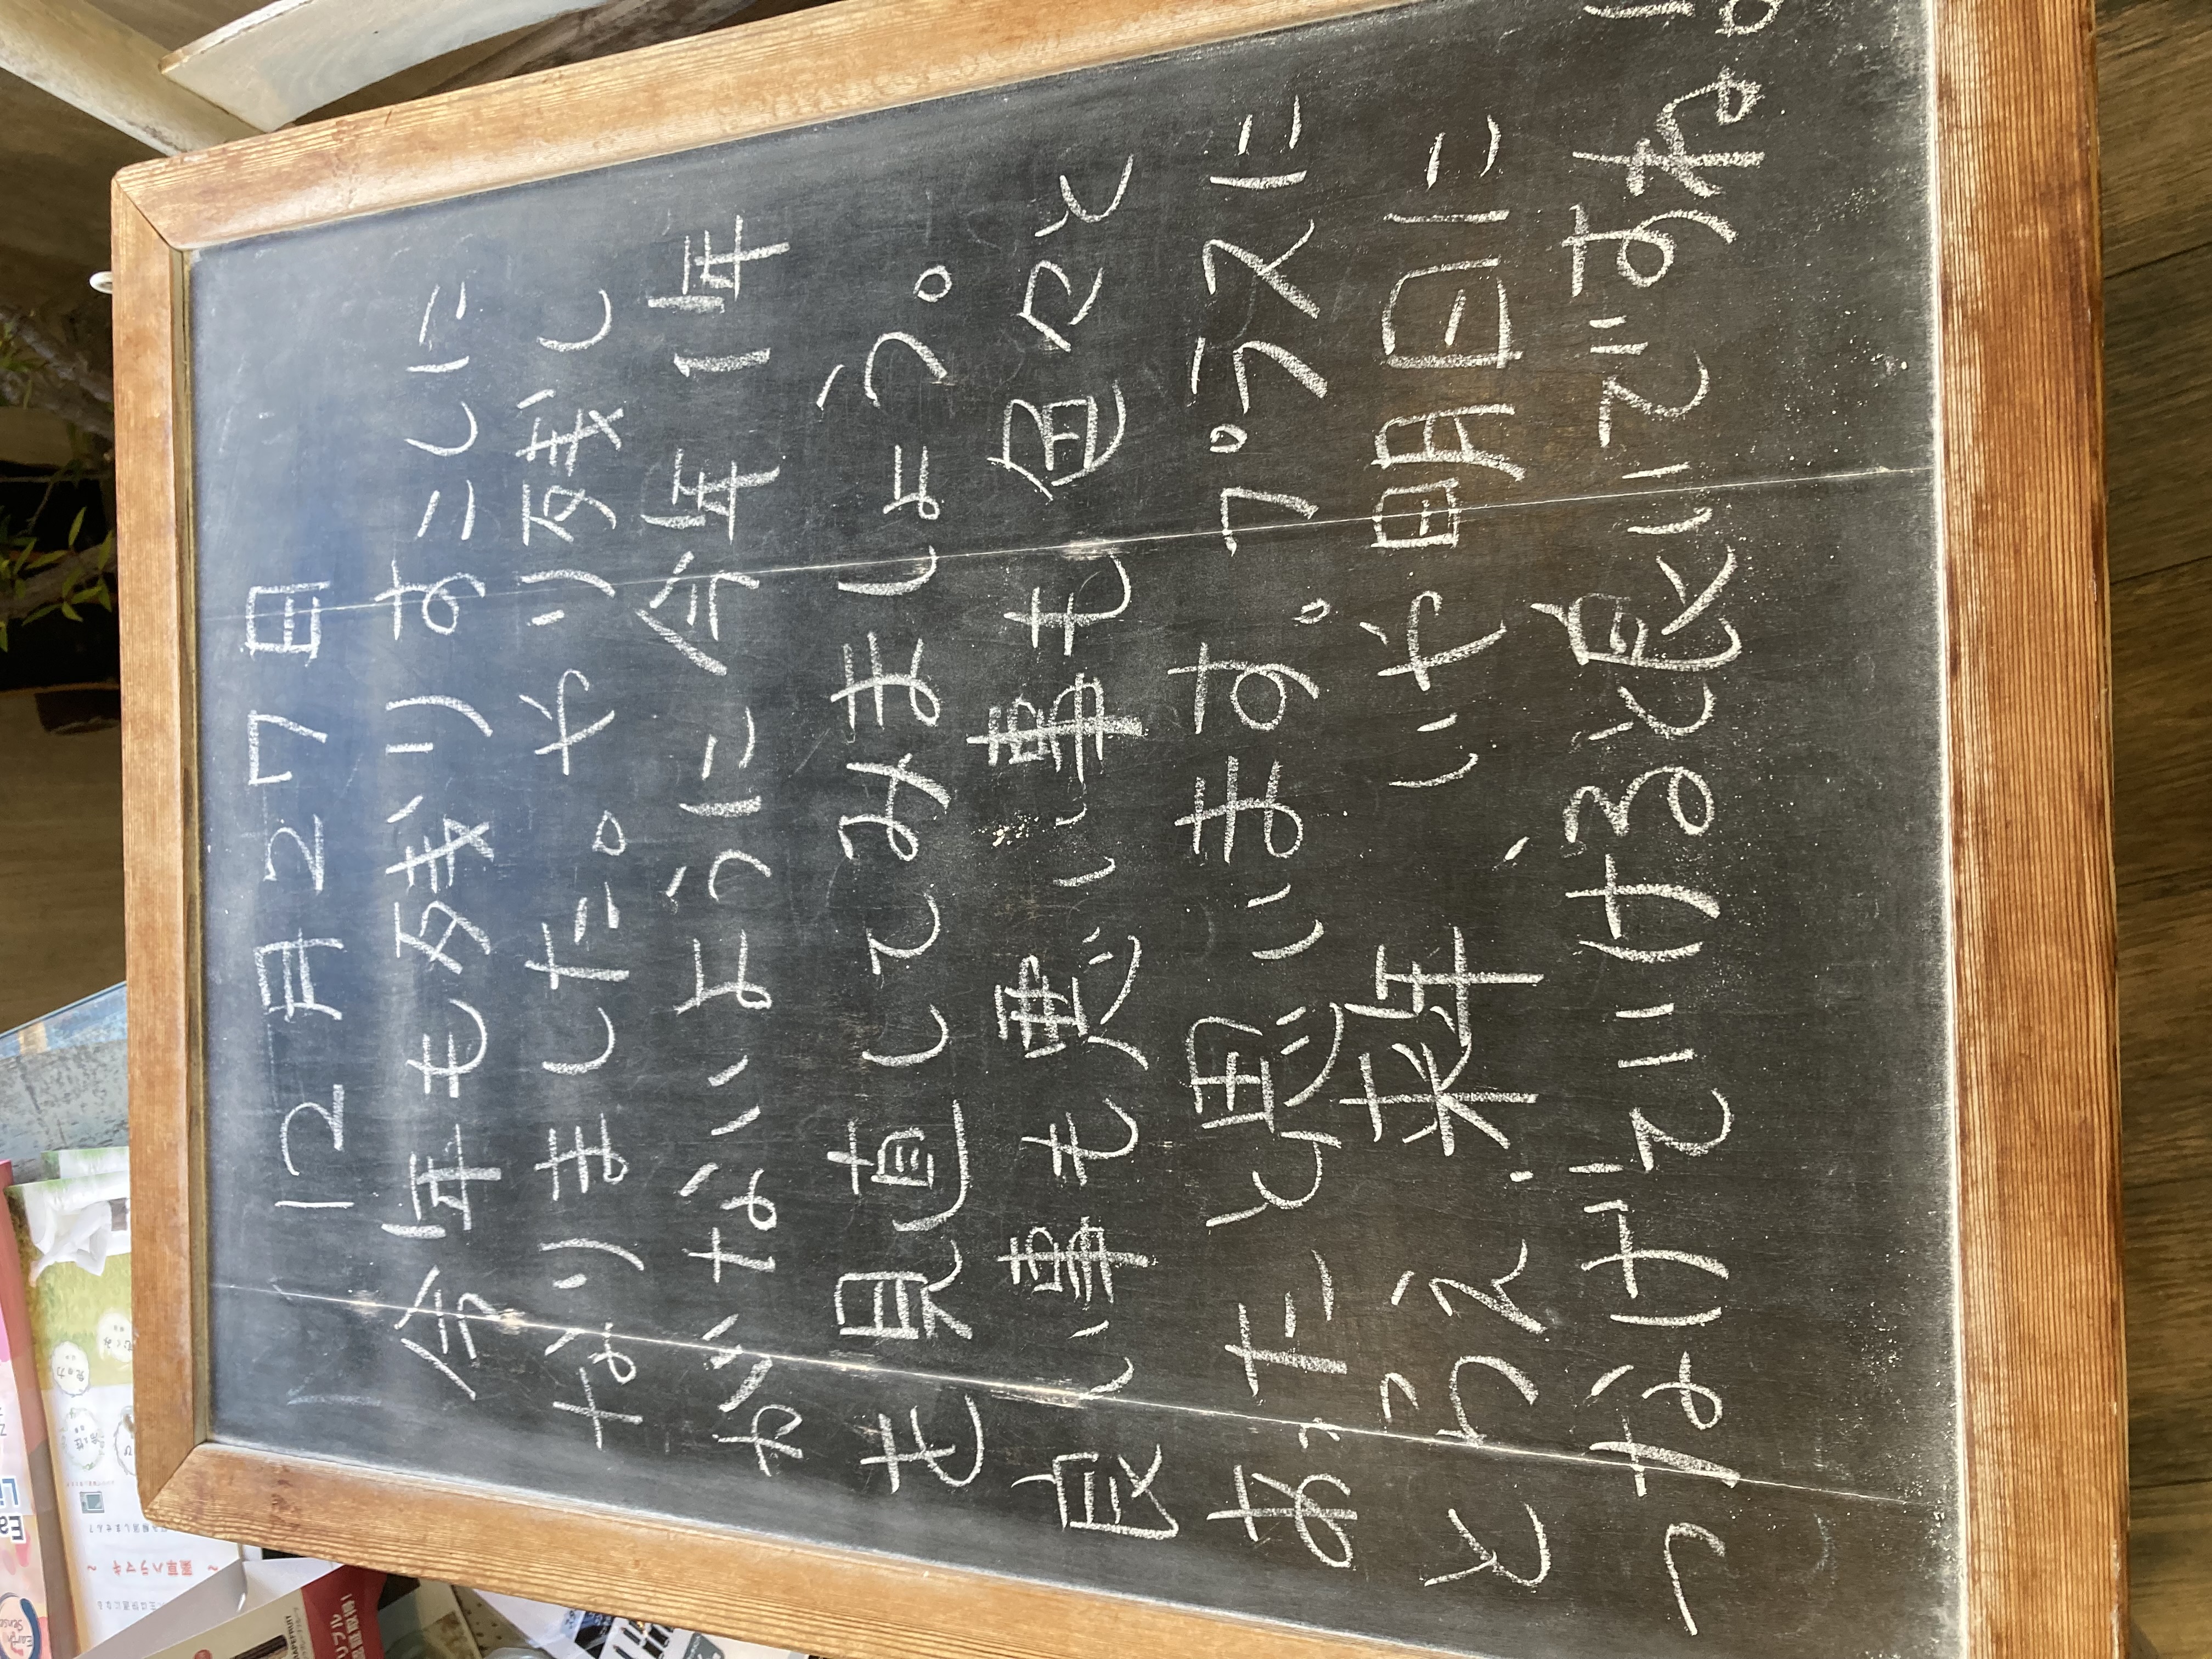 12月27日
今年も残りすこしに
なりました。やり残し
がないように今年1年
を見直してみましょう。
良い事も悪い事も色々と
あったと思います。プラスに
とらえ、来年、いや明日に
つなげていけると良いですね。
薬草ハラマキ